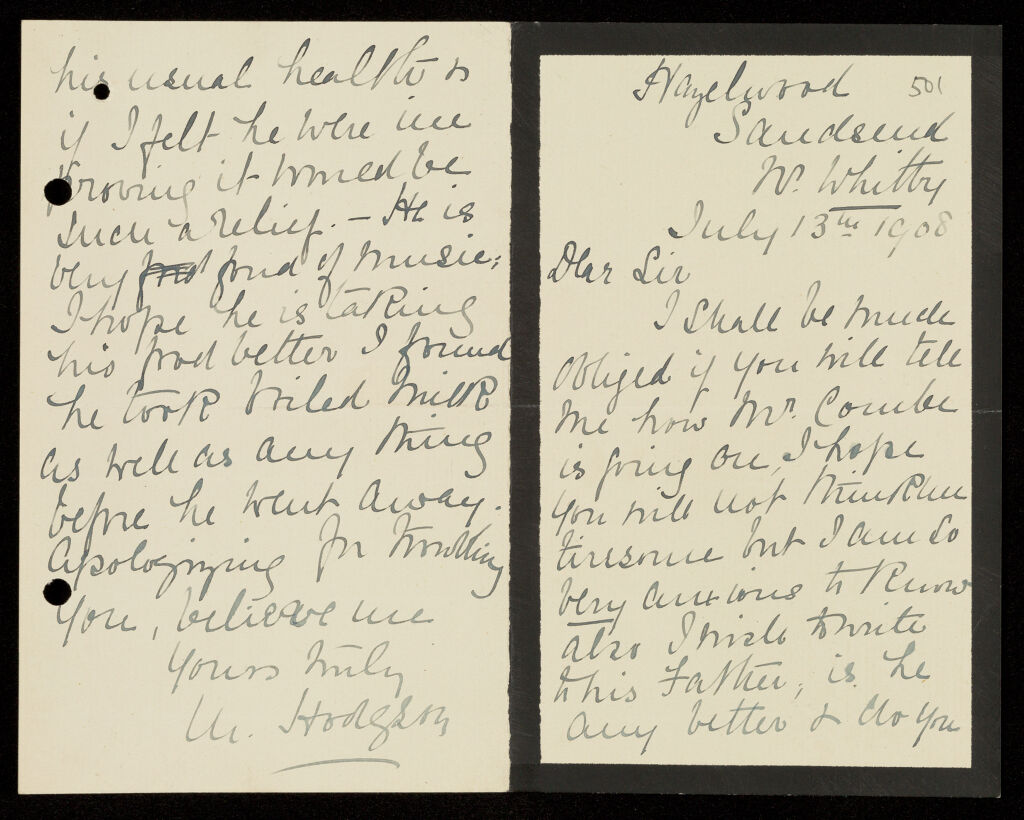 Hazelwood
501
Sandsend
Nr. Whitby
July 13th 1908
Dear Sir
I shall be much
obliged if you will tell
me how Mr. Combe
is going on, I hope
you will not think me
tiresome but I am so
very anxious to know
also I wish to write
to his Father, is he
any better & do you
his usual health &
if I felt he were im
proving it would be
such a relief. - He is
very fond fond of music;
I hope he is taking
his food better I found
he took boiled milk
as well as any thing
before he went away.
Apologizing for troubling
you, believe me
Yours truly
M. Hodgson